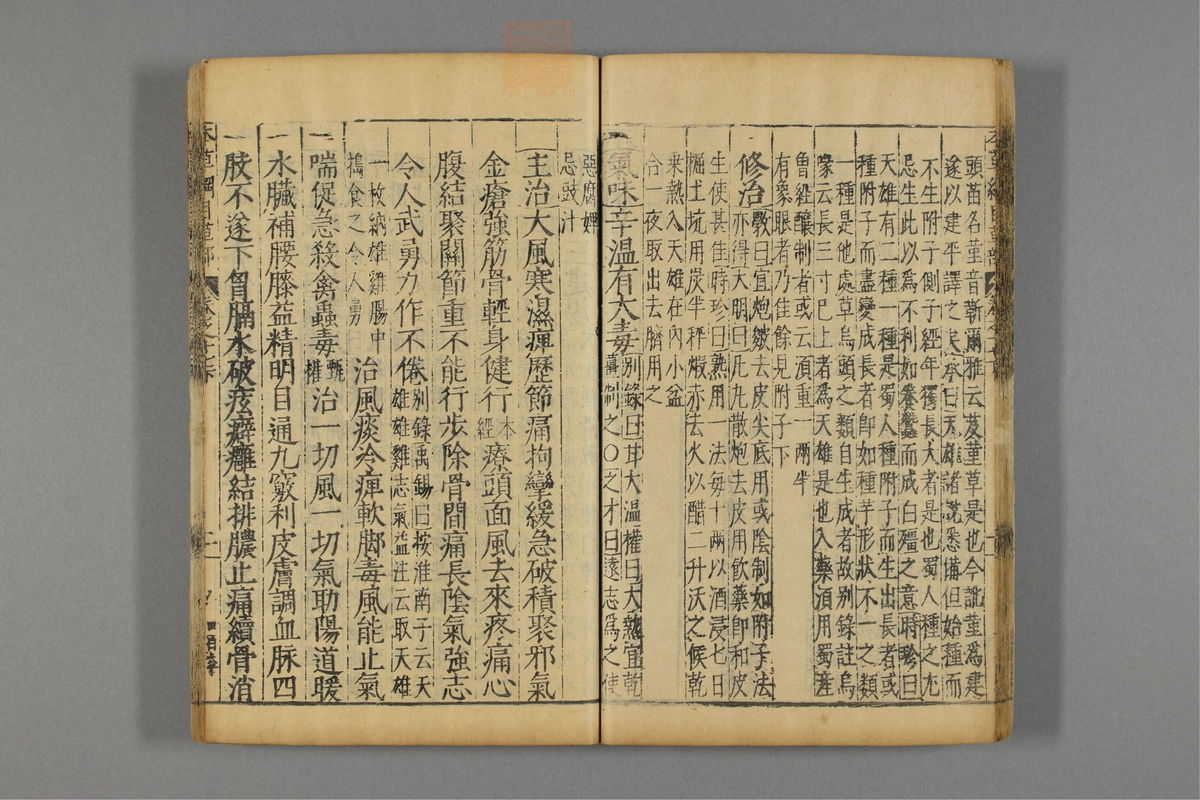 頭苗名堇音靳爾雅云芨堇草是也今訛堇爲建
遂以建平譯之矣承曰天雄諸說悉備但始種而
不生附子側子經年獨長大者是也蜀人種之尤
忌生此以爲不利如養蠶而成白殭之意時珍曰
天雄有二種一種是蜀人種附子而生出長者或
種附子而盡變成長者即如種芋形狀不一之類
一種是他處草烏頭之類自生成者故別錄註烏
喙云長三寸已上者爲天雄是也入藥須用蜀產
曾經釀制者或云須重一兩半
有象眼者乃佳餘見附子下
修治 斅曰宜炮皴去皮尖底用或陰制如附子法
亦得大明曰凡丸散炮去皮用飲藥即和皮
生使甚佳時珍曰熟用一法每十兩以酒浸七日
掘土坑用炭半秤煅赤去火以醋二升沃之候乾
乘熱入天雄在內小盆
合一夜取出去臍用之
氣味辛溫有大毒 別錄曰甘大溫權曰大熱宜乾
薑制之〇之才曰遠志爲之使
惡腐婢
忌豉汁
主治大風寒濕痺歷節痛拘攣緩急破積聚邪氣
金瘡強筋骨輕身健行 本經 療頭面風去來疼痛心
腹結聚關節重不能行步除骨間痛長陰氣強志
令人武勇力作不倦 別錄禹錫曰按淮南子云天
雄雄雞志氣益注云取天雄
一枚納雄雞腸中
搗食之令人勇 治風痰冷痺軟脚毒風能止氣
喘促急殺禽蟲毒 甄權 治一切風一切氣助陽道暖
水臟補腰膝益精明目通九竅利皮膚調血脉四
肢不遂下胷膈水破痃癖癰結排膿止痛續骨消
本草綱目草部